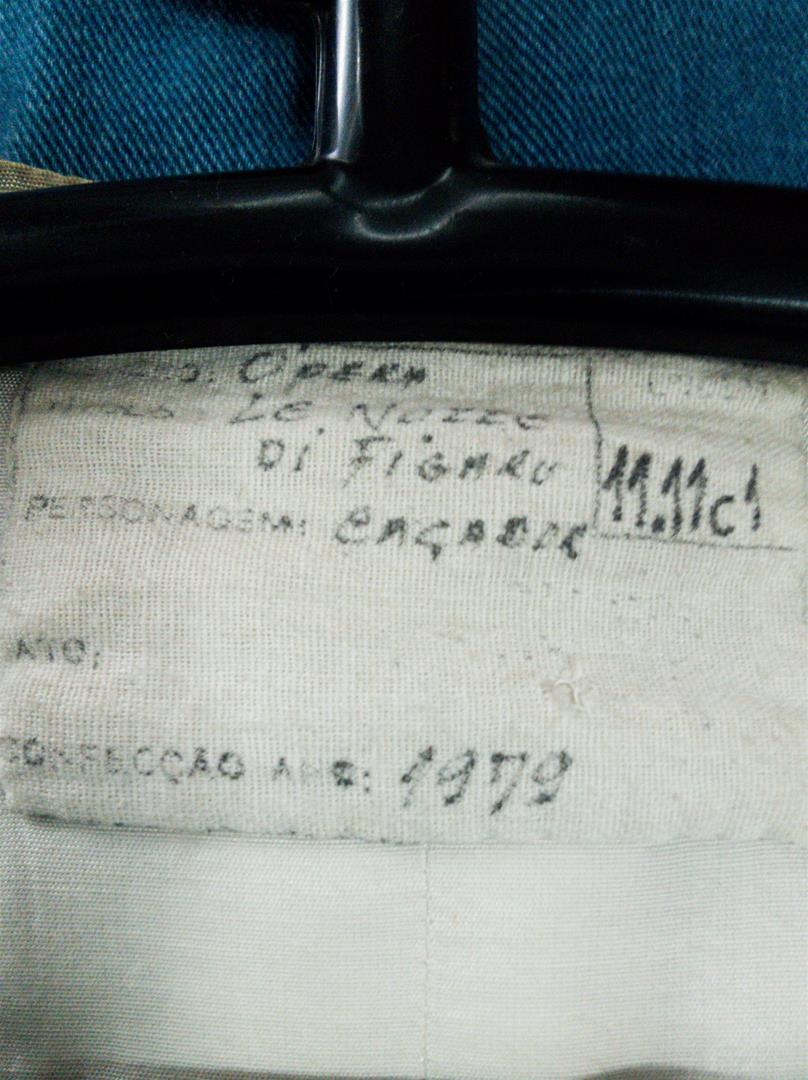 OPERA
LE NOZZE
DI FIGARO
11.11c1
PERSONAGEM: CAÇADOR
ATO:
CONFECÇÃO ANO: 1979